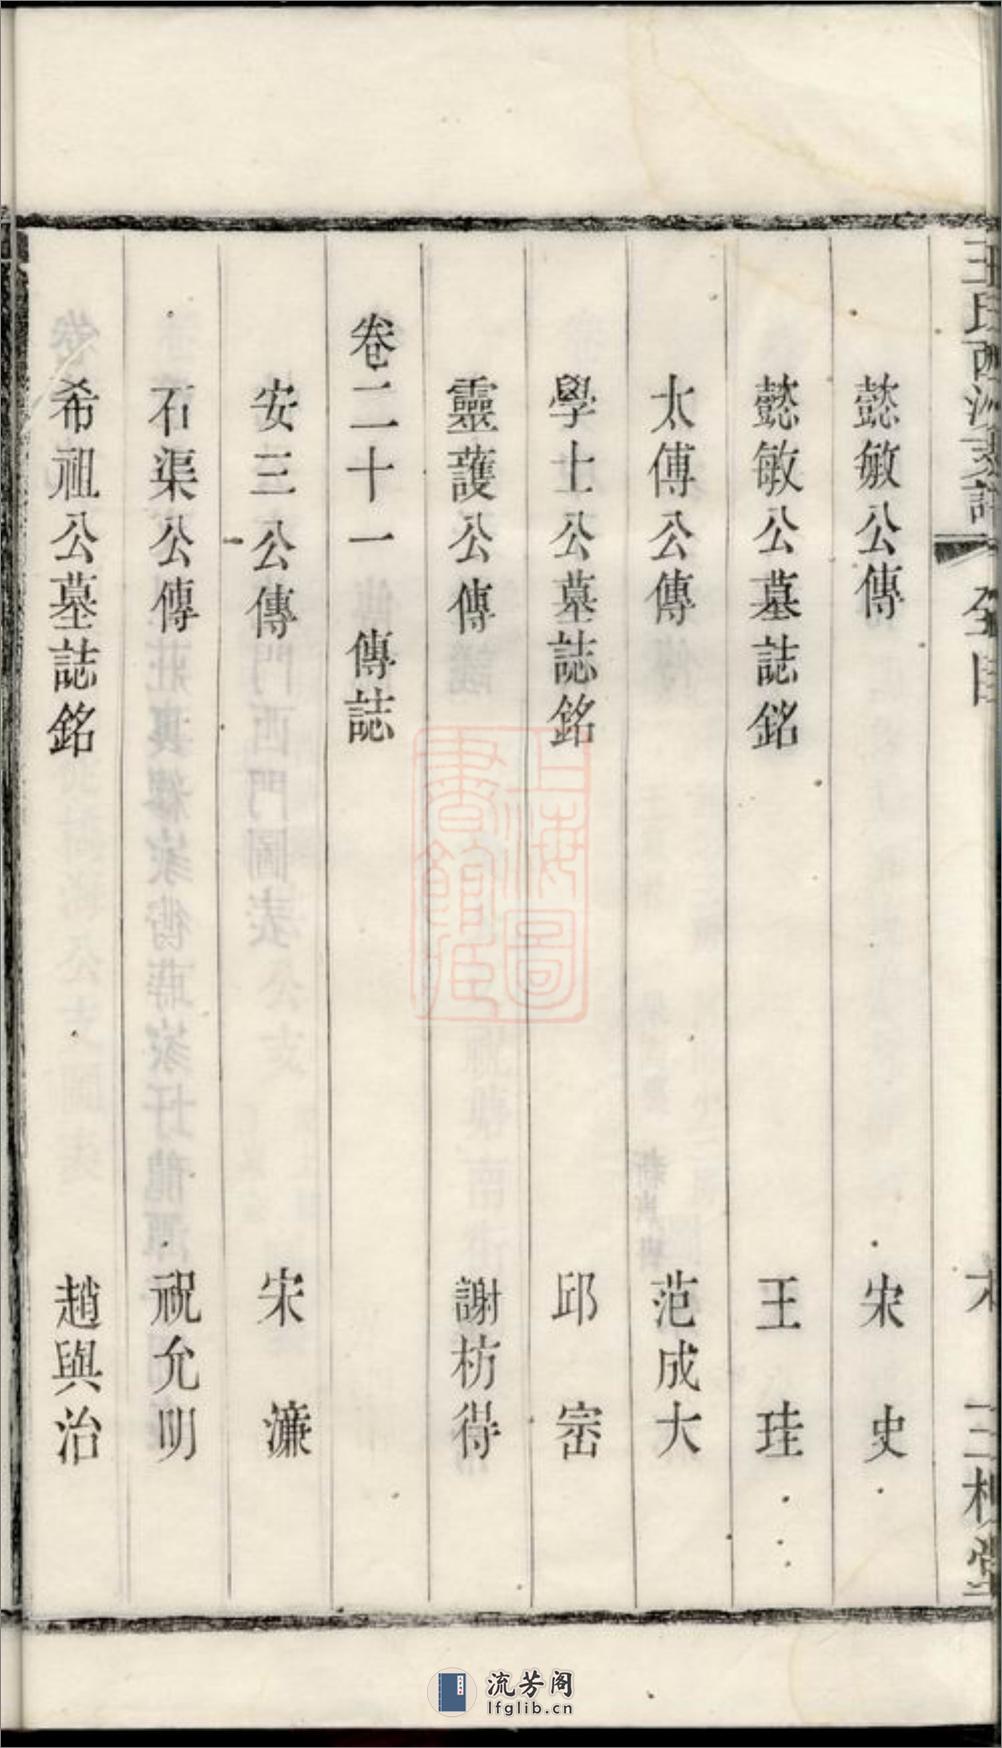 懿敏公傳 宋史
懿敏公墓誌銘 王珪
太傅公傳 范成大
學士公墓誌銘 邱崈
靈護公傳 謝枋得
卷二十一 傳誌
安三公傳 宋濂
石渠公傳 祝允明
希祖公墓誌銘 趙與治
上海圖書館藏
流芳阁
lfglib.cn